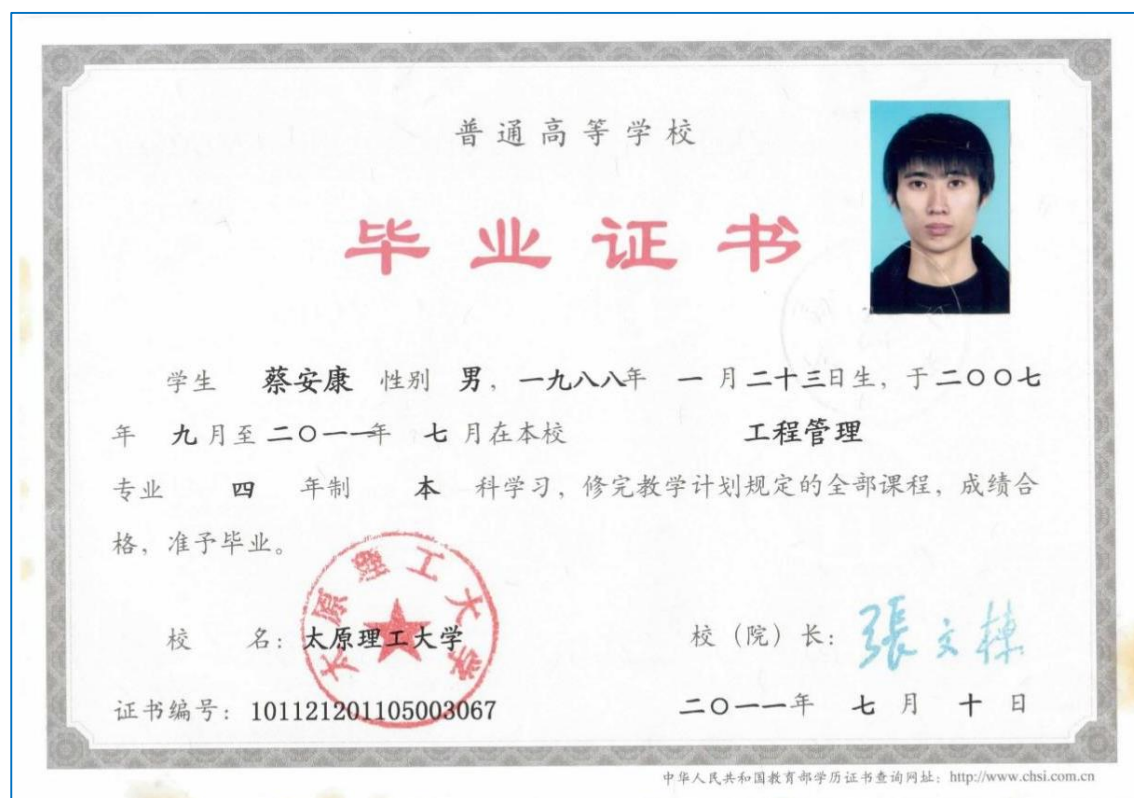 普通高等学校
毕业证书
学生 蔡安康 性别 男，一九八八年 一 月二十三日生，于二〇〇七
年 九月至二〇一一年 七 月在本校 工程管理
专业 四 年制 本 科学习，修完教学计划规定的全部课程，成绩合
格，准予毕业。
太原理工大学
校 名：太原理工大学 校（院）长：張文棟
证书编号：101121201105003067 二〇一一年 七 月 十 日
中华人民共和国教育部学历证书查询网址：http://www.chsi.com.cn